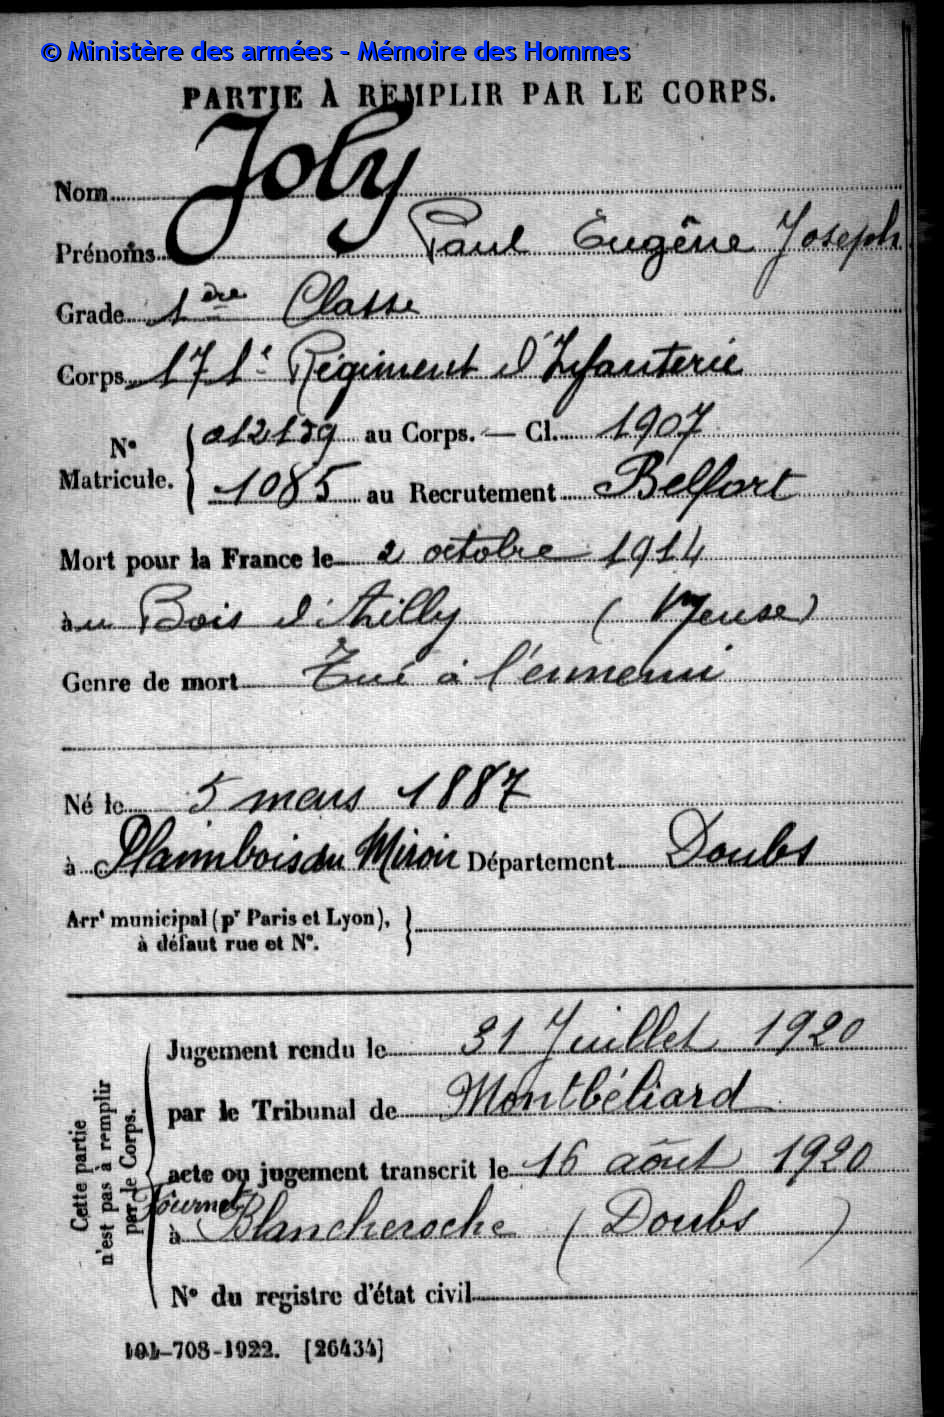 © Ministère des armées - Mémoire des Hommes
PARTIE À REMPLIR PAR LE CORPS.
Nom Joly
Prénoms Paul Eugêne Joseph
Grade 1ère Classe
Corps 171e Régiment d'Infanterie
N° Matricule. { 012139 au Corps. — Cl. 1907
1085 au Recrutement Belfort
Mort pour la France le 2 octobre 1914
àu Bois d'Ailly (Meuse)
Genre de mort Tué à l'ennemi
Né le 5 mars 1887
à Plaimbois du Miroir Département Doubs
Arrt municipal (pr Paris et Lyon), à défaut rue et N°. }
Cette partie n'est pas à remplir par le Corps.
Jugement rendu le 31 Juillet 1920
par le Tribunal de Montbéliard
acte ou jugement transcrit le 16 août 1920
Fournet
à Blancheroche (Doubs)
N° du registre d'état civil
101-708-1922. [26434]